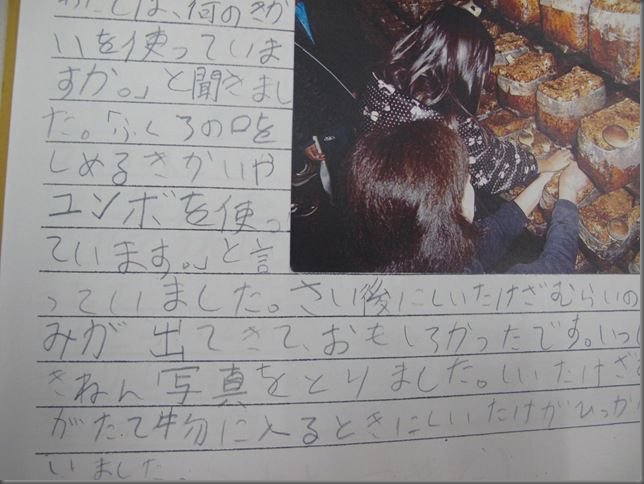 わたしは、何のきか
いを使っていま
すか。」と聞きまし
た。「ふくろの口を
しめるきかいや
ユンボを使っ
ています。」と言
っていました。さい後にしいたけざむらいの
みが出てきて、おもしろかったです。いっし
きねん写真をとりました。しいたけざむ
がたて物に入るときにしいたけがひっかか
いました。